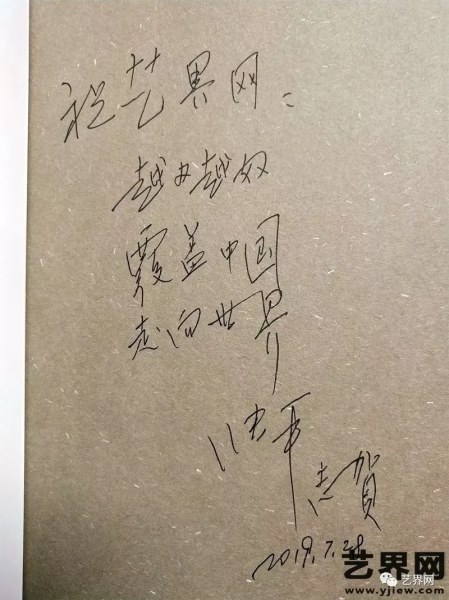 祝艺界网:
越办越好
覆盖中国
走向世界
志賀
2019.7.28
艺界网
艺界网
www.yjiew.com